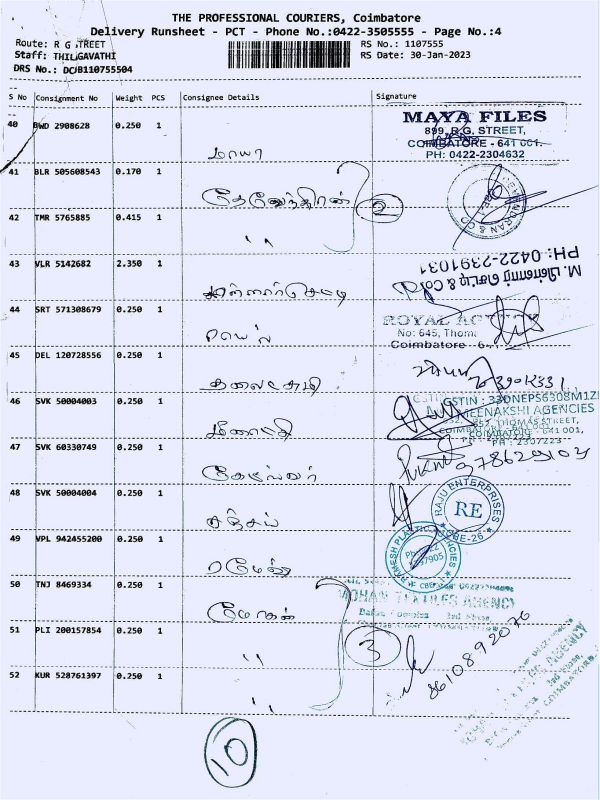 THE PROFESSIONAL COURIERS, Coimbatore
Delivery Runsheet - PCT - Phone No.:0422-3505555 - Page No.:4
Route: R G STREET
RS No.: 1107555
Staff: THILAGAVATHI
RS Date: 30-Jan-2023
DRS No.: DCJB110755504
S No Consignment No Weight PCS Consignee Details Signature
40 BWD 2908628 0.250 1 மாயா
MAYA FILES
899, R.G. STREET,
COIMBATORE - 641 001.
PH: 0422-2304632
41 BLR 505608543 0.170 1 தேவேந்திரன் 2
DEVENDRAN & CO
42 TMR 5765885 0.415 1 "
43 VLR 5142682 2.350 1
PH: 0422-2391031
44 SRT 571308679 0.250 1 ராயல்
ROYAL AGENCY
No: 645, Thom
Coimbatore - 641
45 DEL 120728556 0.250 1
46 SVK 50004003 0.250 1 மீனாட்சி
GSTIN : 33DNEPS6308M1Z
MEENAKSHI AGENCIES
THOMAS STREET,
COIMBATORE - 641 001,
PH : 2307223
47 SVK 60330749 0.250 1
9786259103
48 SVK 50004004 0.250 1 சஞ்சய்
RAJU ENTERPRISES
RE
CBE-26
49 VPL 942455200 0.250 1 ரமேஷ்
RAMESH PLASTIC AGENCIES
50 TNJ 8469334 0.250 1 மோகன்
MOHAN TEXTILES AGENCY
51 PLI 200157854 0.250 1 " 3
8610892076
52 KUR 528761397 0.250 1 "
10